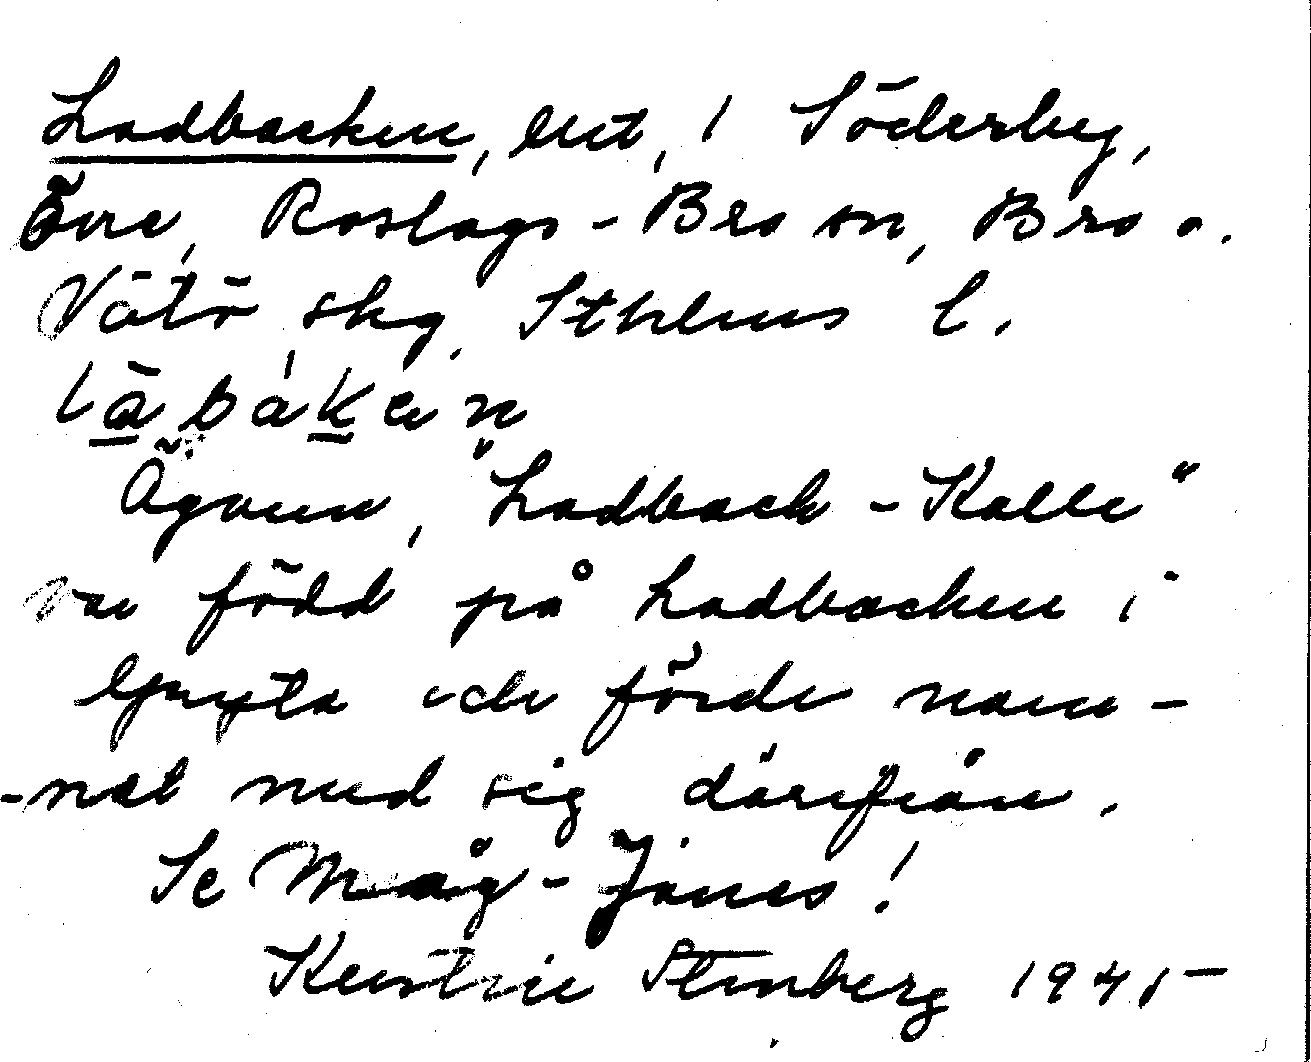 Ladbacken, lht, i Söderby,
Övre, Roslags-Bro sn, Bro o.
Vätö skg. Sthlms l.
lābàkən
Ägaren, "Ladback-Kalle"
var född på Ladbacken i
och förde nam-
-net med sig därifrån.
Se Måg-Jones!
Kerstin Stenberg 1945